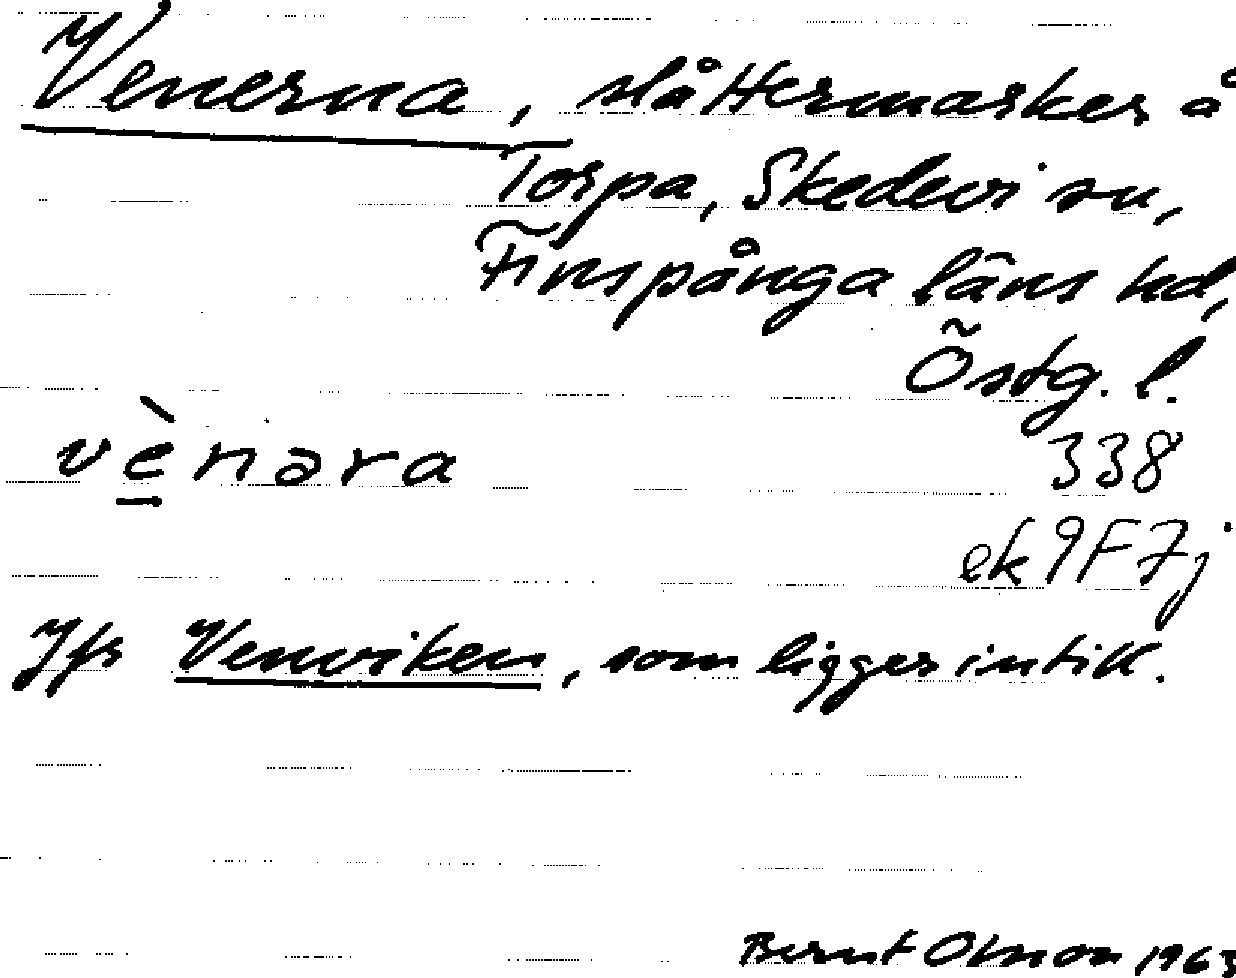 Venerna, slåttermarker å
Torpa, Skedevi sn,
Finspånga läns hd,
Östg. l.
vènara
338
ek 9F7j
Jfr Venviken, som ligger intill.
Bernt Olsson 1963